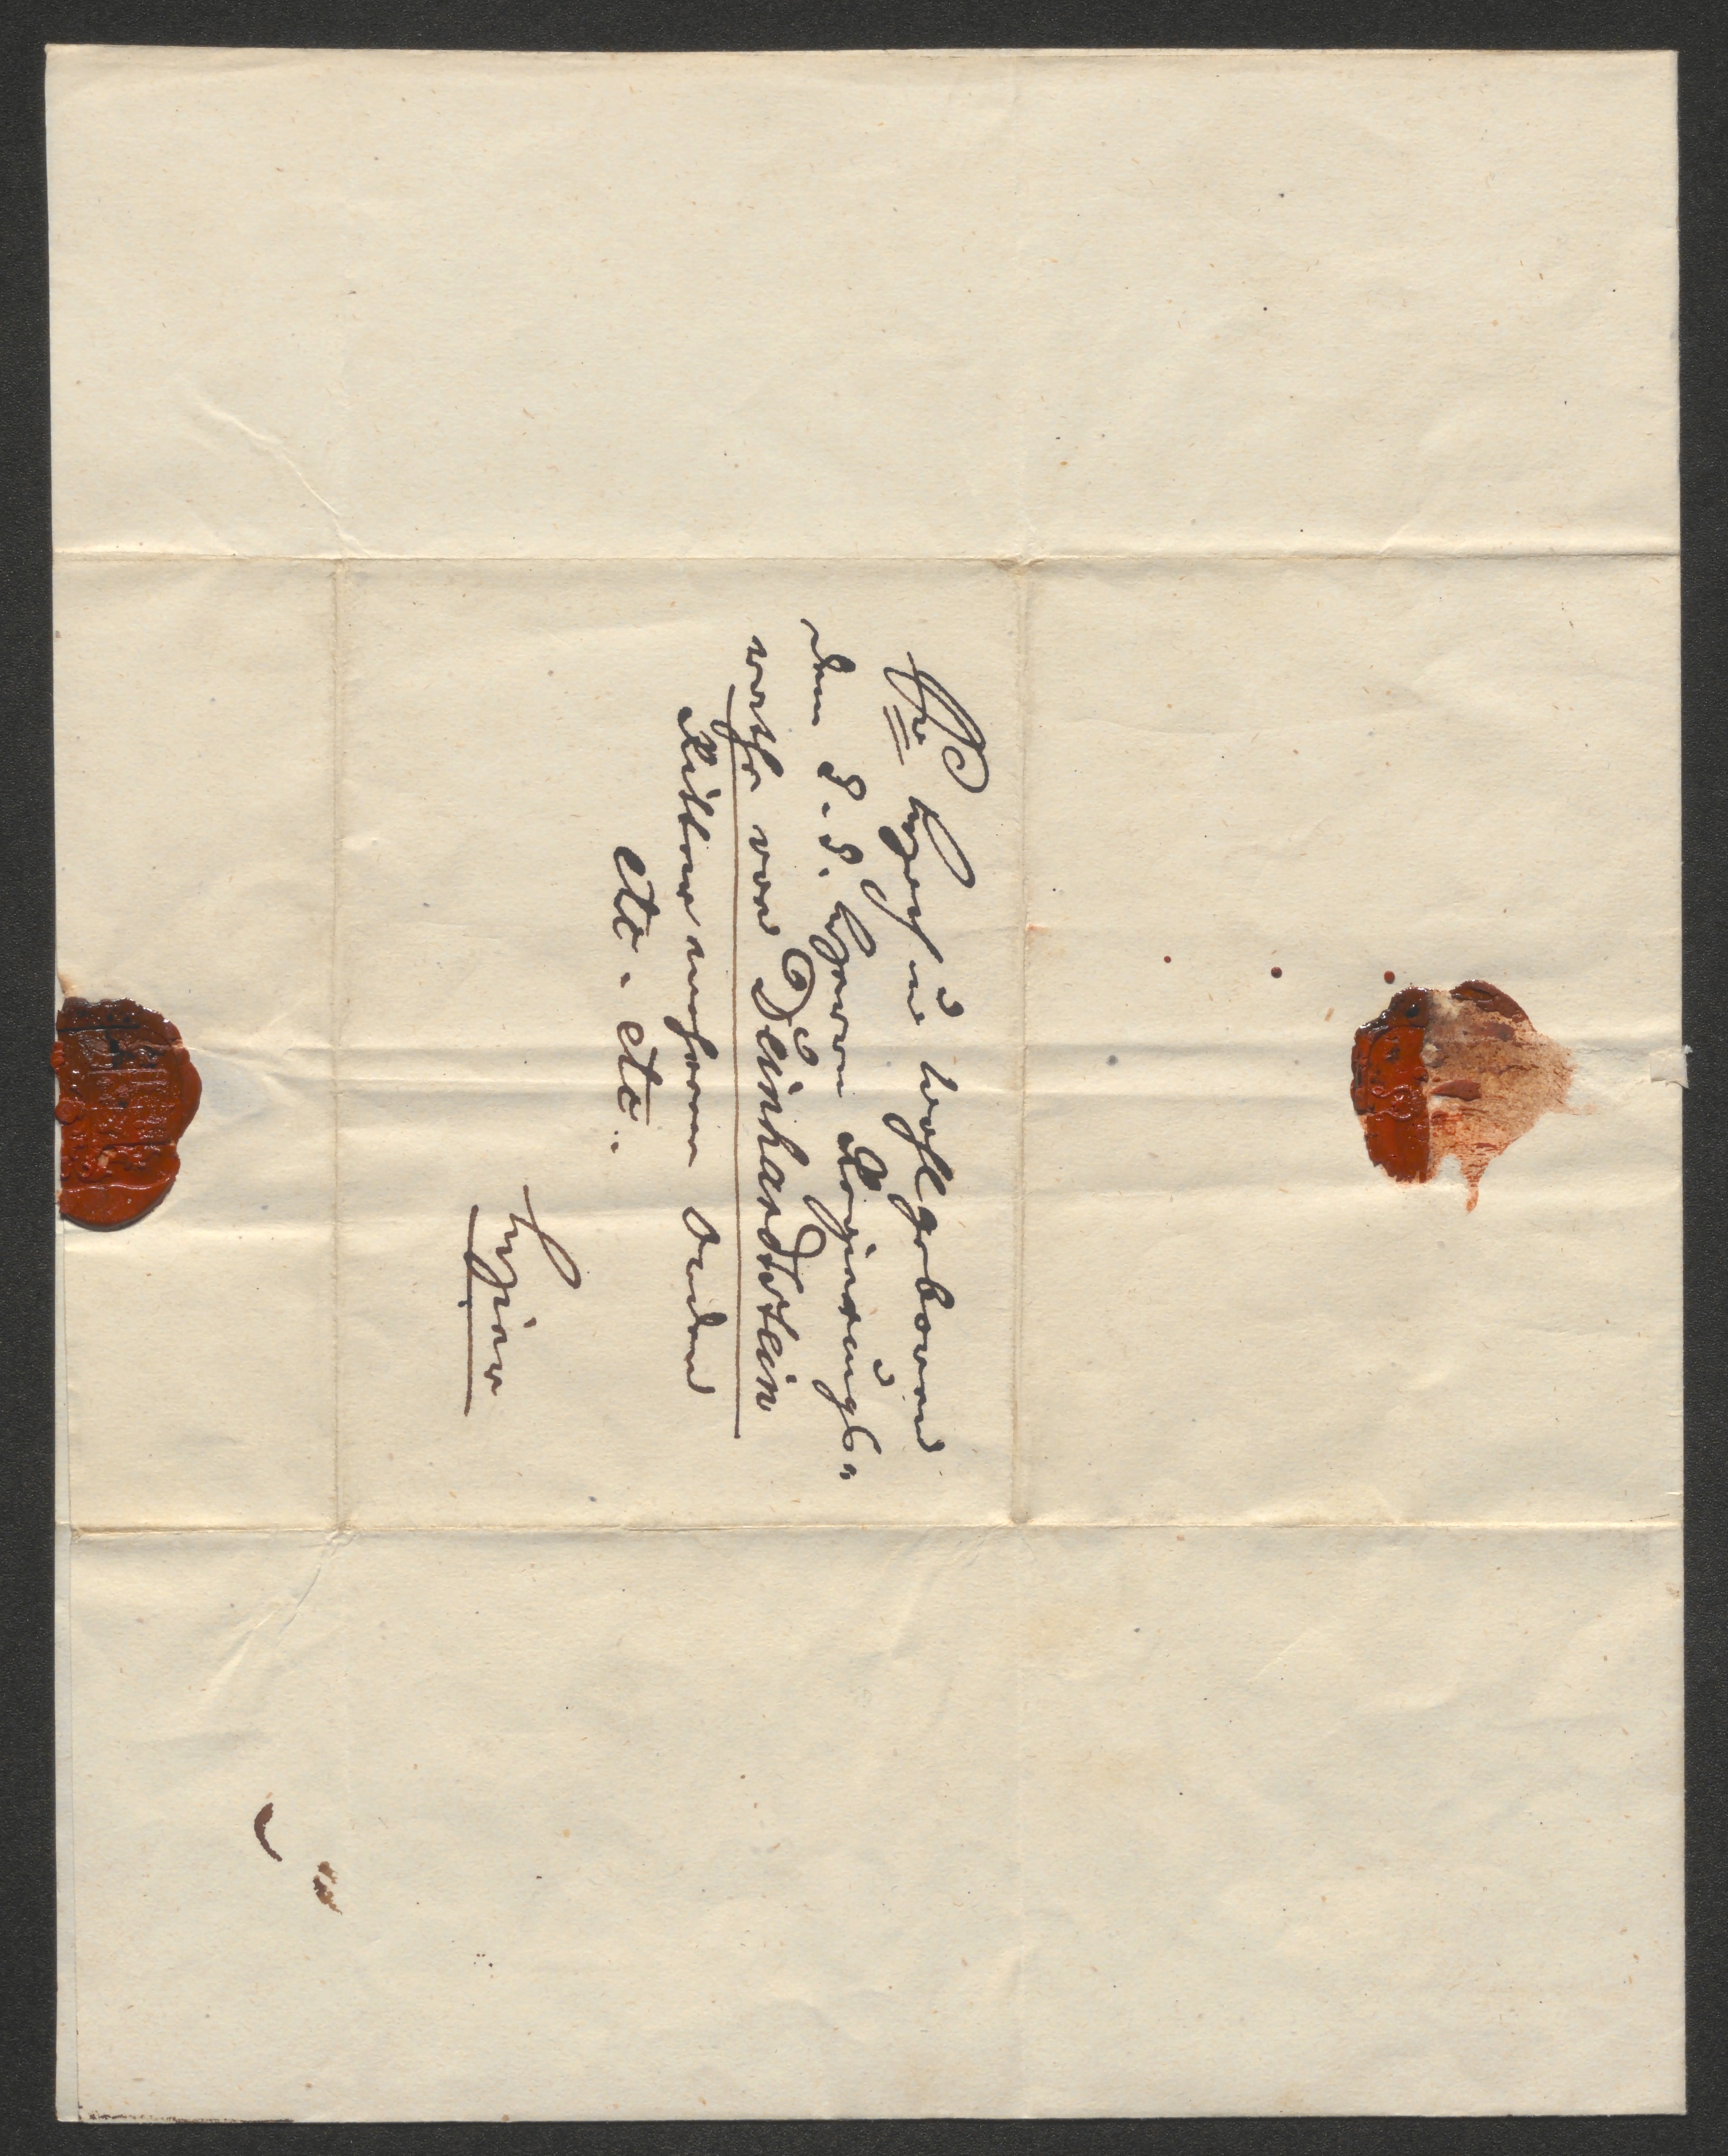 Sr Hoch und Wohlgeboren
dem k. k. Herrn Regierungs-
rathe von Deinhardstein
Ritter mehrerer Orden
etc. etc.
Hier